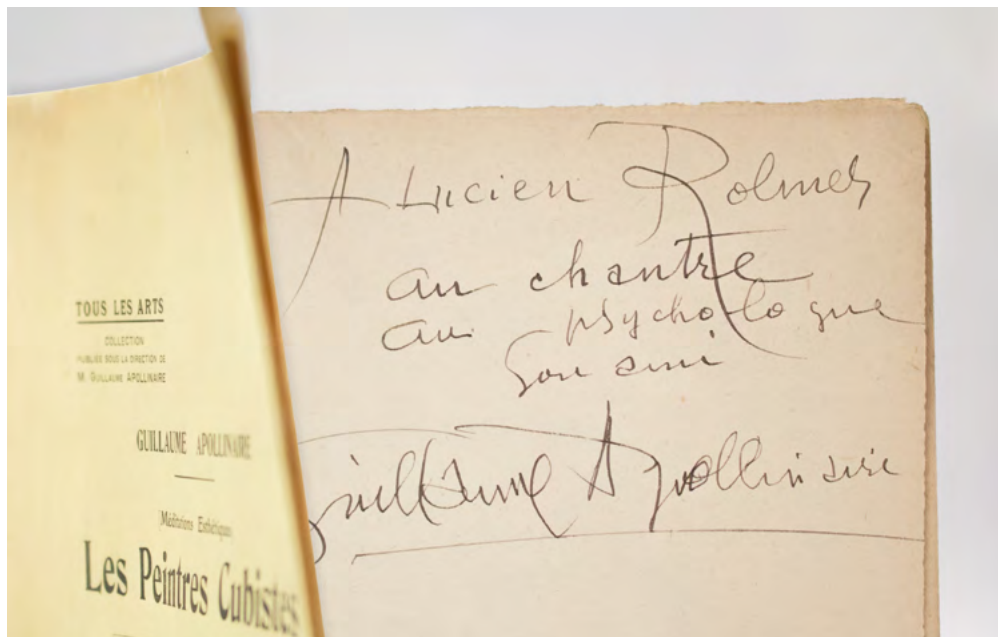 TOUS LES ARTS
COLLECTION
PUBLIÉE SOUS LA DIRECTION DE
M. GUILLAUME APOLLINAIRE
GUILLAUME APOLLINAIRE
[Méditations Esthétiques]
Les Peintres Cubistes
A Lucien Rolmer
au chantre
au psychologue
Son ami
Guillaume Apollinaire